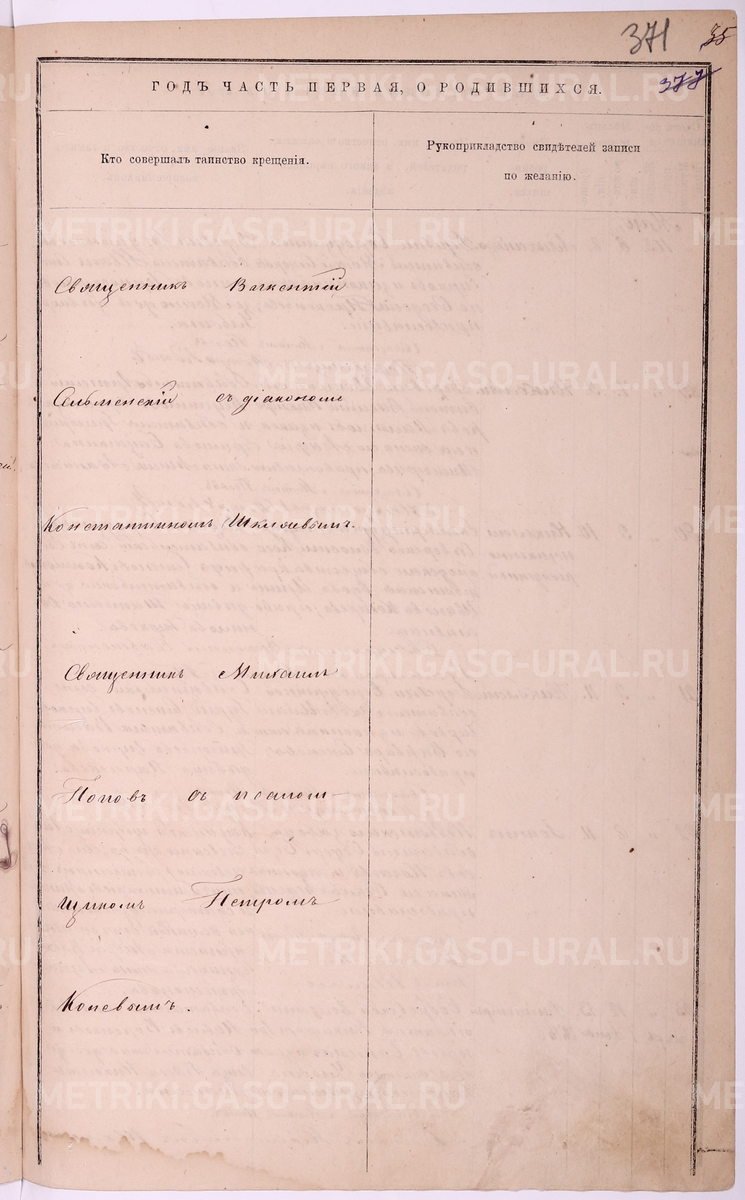 371
35
377
ГОДЪ ЧАСТЬ ПЕРВАЯ, О РОДИВШИХСЯ.
Кто совершалъ таинство крещенія.
Рукоприкладство свидѣтелей записи
по желанію.
Священникъ Викентій
Сельменскій съ діакономъ
Константиномъ Шкляевымъ.
Священникъ Михаилъ
Поповъ съ псалом-
щикомъ Петромъ
Коневымъ.
METRIKI.GASO-URAL.RU